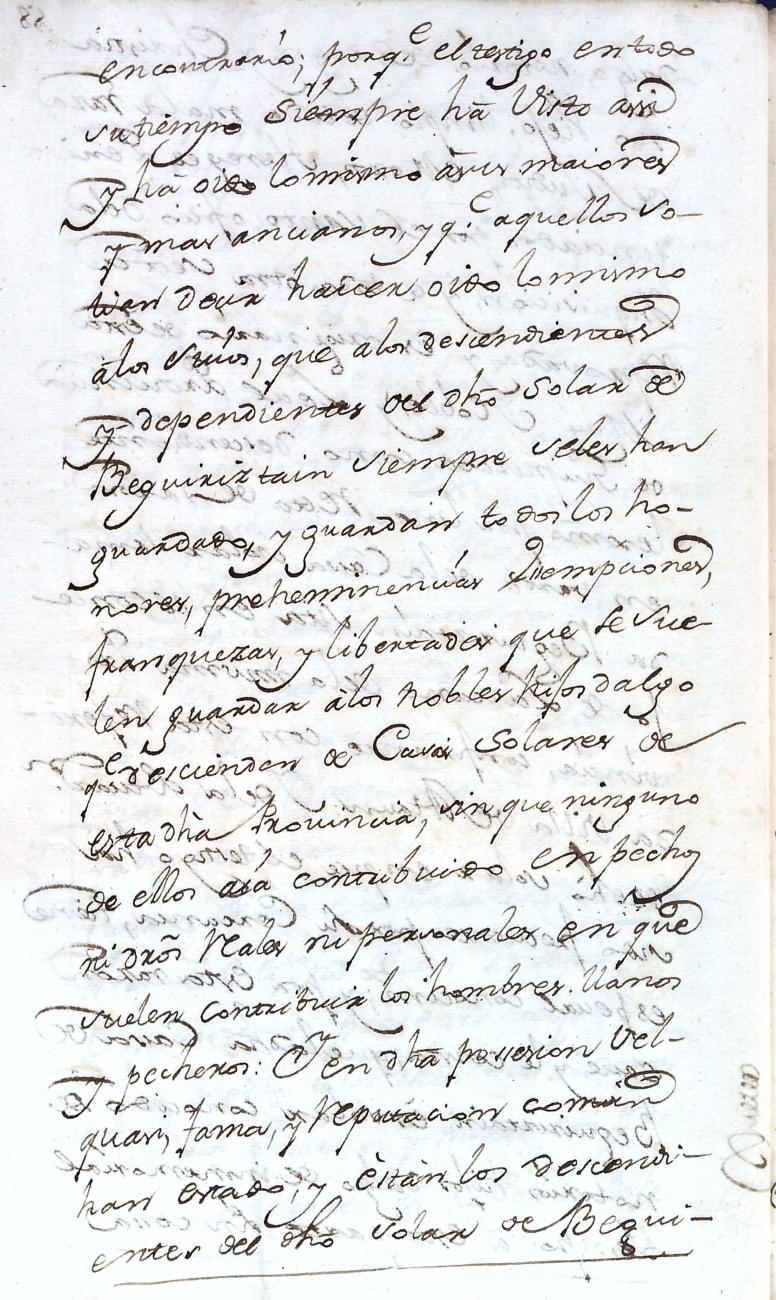 encontrario; porq.e el testigo en todo
su tiempo siempre hà Visto assi
y hà oido lo mismo à sus maiores
y mas ancianos, y q.e aquellos so-
lian decir haver oido lo mismo
à los suios, que a los descendientes
y dependientes del dho solar de
Beguiriztain siempre se les han
guardado, y guardan todos los ho-
nores, preheminencias, Exempciones,
franquezas, y libertades que se sue
len guardar à los nobles hijos dalgo
q.e descienden de Casas Solares de
esta dha Provincia, sin que ninguno
de ellos aia contribuido en pechos
ni dros Reales ni personales en que
suelen contribuir los hombres llanos
y pecheros: Y en dha possesion vel-
quasi, fama, y reputacion comun
han estado, y èstàn los descendi-
entes del dho solar de Begui-